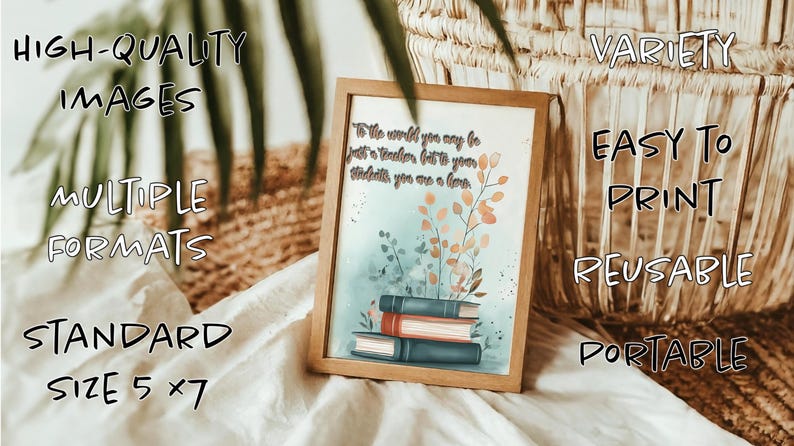 HIGH-QUALITY
IMAGES
MULTIPLE
FORMATS
STANDARD
SIZE 5 x7
To the world you may be
just a teacher, but to your
students, you are a hero.
VARIETY
EASY TO
PRINT
REUSABLE
PORTABLE